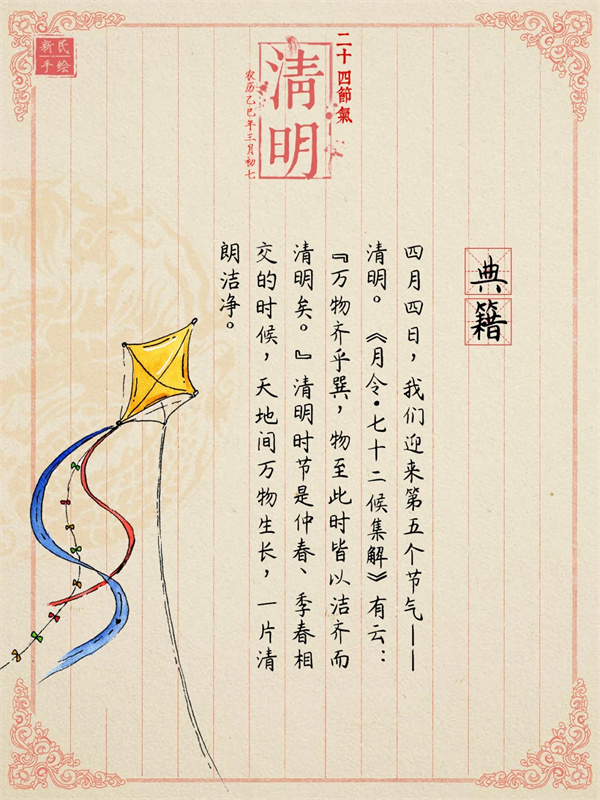 新民
手绘
二十四節氣
清明
农历乙巳年三月初七
典籍
四月四日，我们迎来第五个节气——
清明。《月令·七十二候集解》有云：
『万物齐乎巽，物至此时皆以洁齐而
清明矣。』清明时节是仲春、季春相
交的时候，天地间万物生长，一片清
朗洁净。